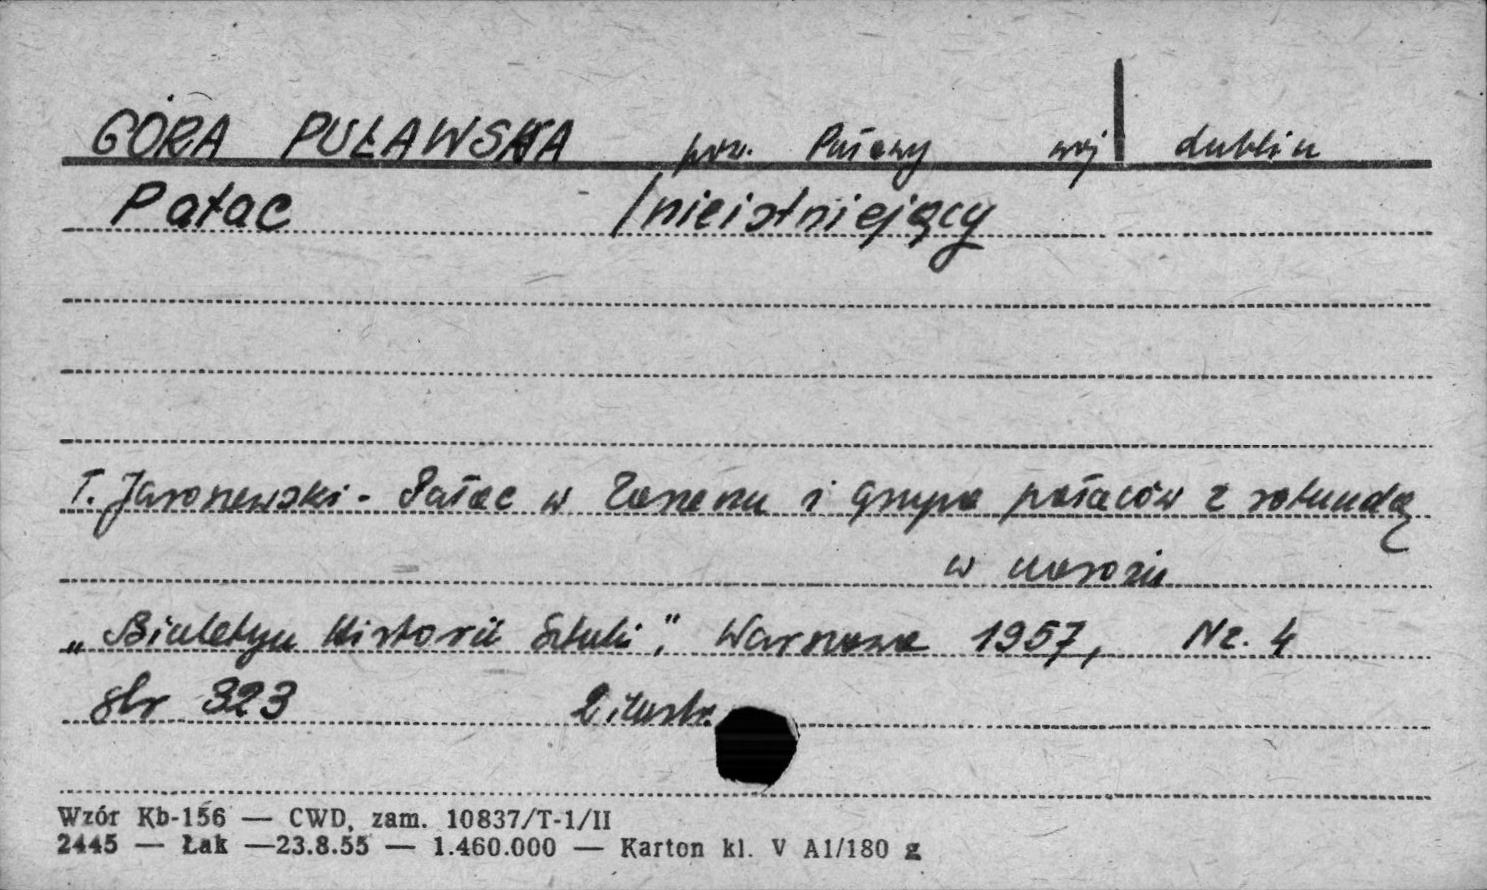 GÓRA PUŁAWSKA pow. Puławy woj lublin
Pałac /nieistniejący
T. Jaroszewski - Pałac w i grupa pałaców z rotundą
w narożu
„Biuletyn Historii Sztuki", Warszawa 1957, Nr. 4
str 323 2 ilustr.
Wzór Kb-156 — CWD, zam. 10837/T-1/II
2445 — Łak —23.8.55 — 1.460.000 — Karton kl. V A1/180 g